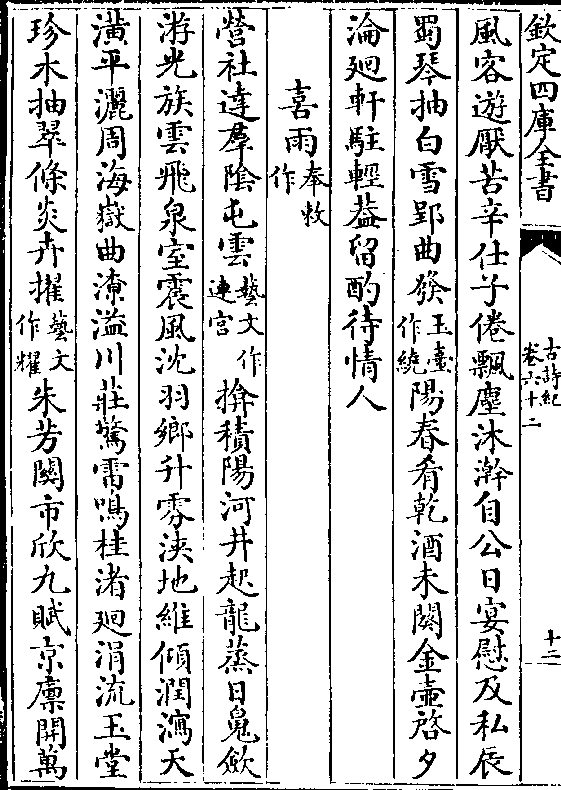 欽定四庫全書
古詩紀
卷六十二
十二
風客遊厭苦辛仕子倦飄塵沐澣自公日宴慰及私辰
蜀琴抽白雪郢曲發玉臺作繞陽春肴乾酒未闋金壺啓夕
淪廻軒駐輕葢留酌待情人
喜雨奉敕作
營社達羣陰屯雲藝文作連宫揜積陽河井起龍蒸日䰟斂
游光族雲飛泉室震風沈羽鄉升雰浹地維傾潤瀉天
潢平灑周海嶽曲潦溢川莊驚雷鳴桂渚廻涓流玉堂
珍木抽翠條炎卉擢藝文作耀朱芳關市欣九賦京廩開萬